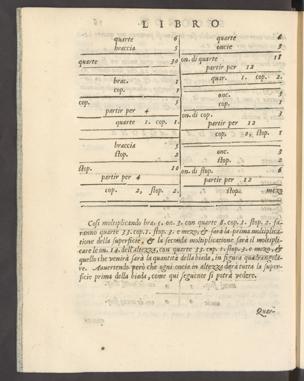 LIBRO
quarte 6
braccia 5
quarte 30
brac. 1
cop. 1
cop. 5
partir per 4
quarte 1. cop. 1.
braccia 5
stop. 2
stop. 10
partir per 4
cop. 2, stop. 2.
quarte 6
oncie 3
on. di quarte 18
partir per 12
quar. 1. cop. 2.
onc. 3
cop. 1
on. di cop. 3
partir per 12
cop. 0, stop. 1
onc. 3
stop. 2
on. di stop. 6
partir per 12
stop. mezo
Così moltiplicando bra. 5. on. 3. con quarte 6. cop. 1. stop. 2. fa-
ranno quarte 33. cop. 1. stop. 3. e mezo, & sarà la prima moltiplica-
tione della superficie, & la seconda moltiplicatione sarà il moltipli-
care le on. 14. dell'altezza, con quarte 33. cop. 1. stop. 3. e mezo, &
quello che venirà sarà la quantità della biada, in figura quadrangola-
re. Avvertendo però che ogni oncia in altezza darà tutta la super-
ficie prima della biada, come qui seguente si potrà vedere.
Quar-